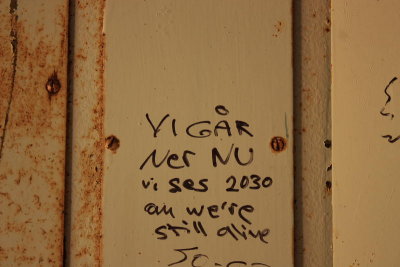 VI GÅR
Ner NU
vi ses 2030
an we're
still alive